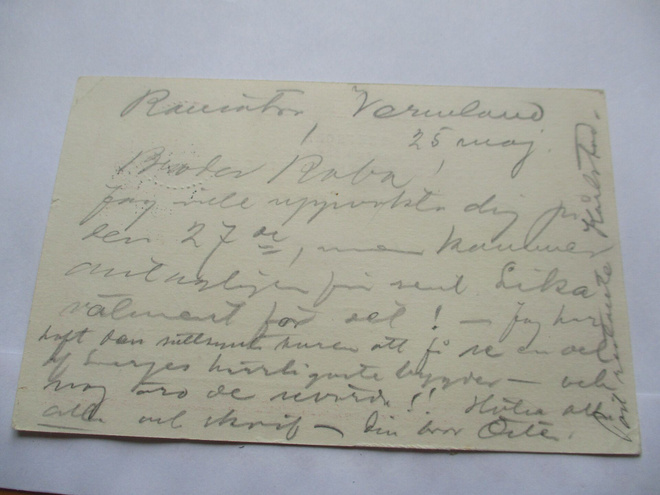 Ransäter, Vermland
25 maj.
Broder Raba!
Jag ville uppvakta dig på
den 27de, men kommer
antagligen för sent. Lika
välment för det! — Jag har
haft den sällsynta turen att få se en del
af Sveriges härrligaste bygder — och
nog äro de värda!! Hälsa
alla och skrif — Din bror Osten.
Karlstad.